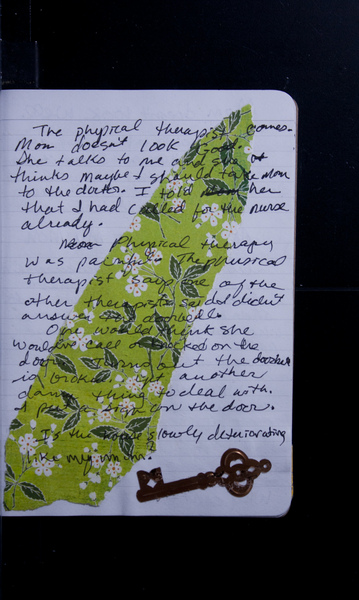 The physical therapist comes.
Mom doesn't look good.
She talks to me and she
thinks maybe I should take mom
to the doctor. I told her
that I had called for the nurse
already.
Physical therapy
was painful. The physical
therapist says one of the
other therapists said I didn't
answer the doorbell.
One would think she
would call or knocked on the
door. Turns out the doorbell
is broken. Yet another
damn thing to deal with.
I put a sign on the door.
Is the house slowly deteriorating
like my mom.